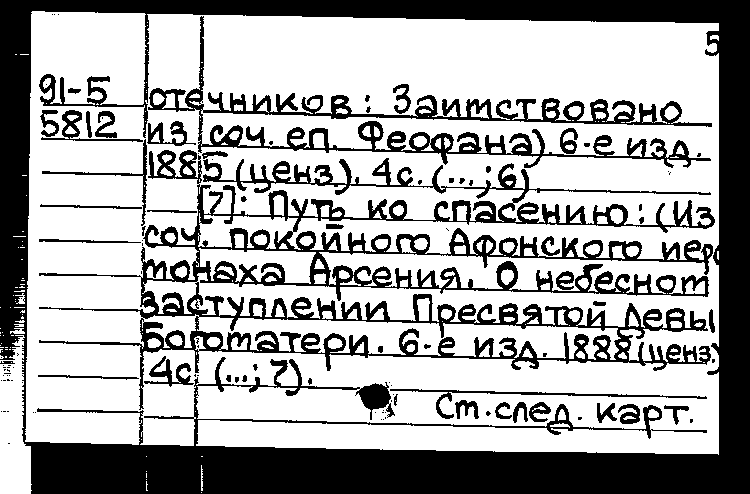 5
91-5 отечников: Заимствовано
5812 из соч. еп. Феофана) 6-е изд.
1885 (ценз.). 4с. (...; 6).
[7]: Путь ко спасению: (Из
соч. покойного Афонского иеро
монаха Арсения. О небесном
заступлении Пресвятой Девы
Богоматери. 6-е изд. 1888 (ценз.)
4с (...; 7).
См. след. карт.